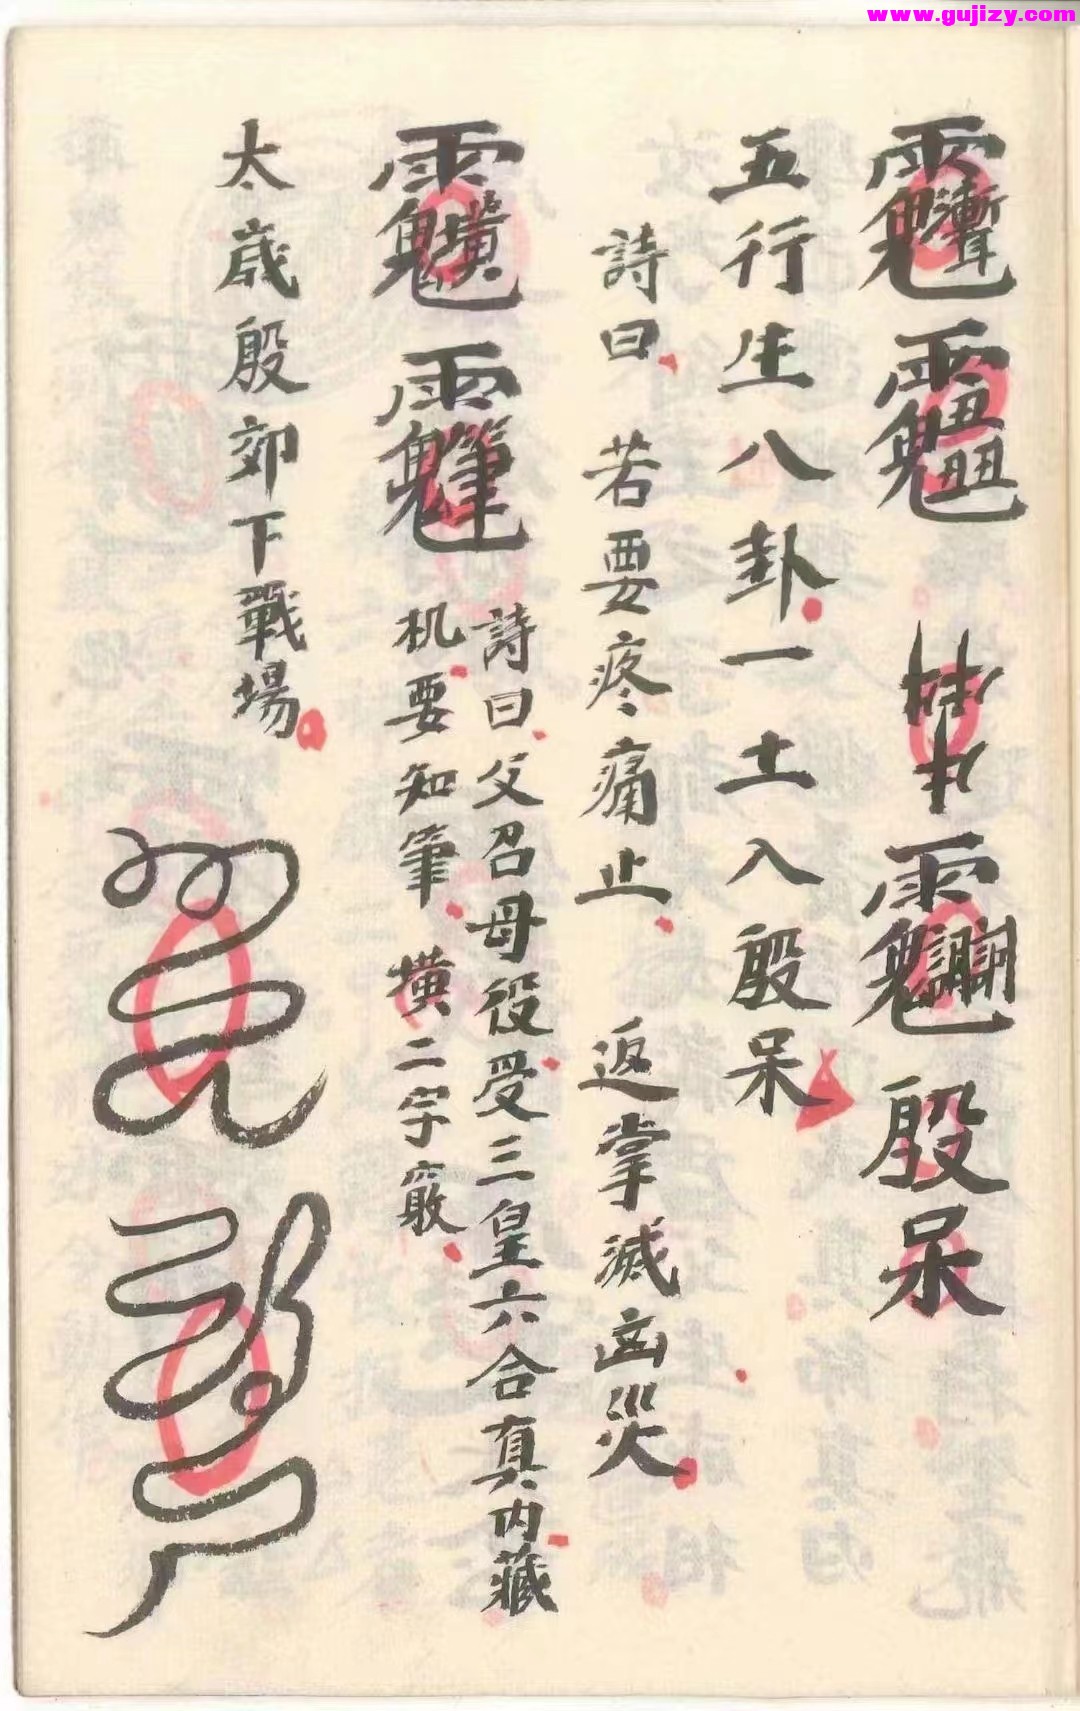 www.gujizy.com
殷呆
五行生八卦一土入殷呆
詩曰 若要疼痛止 返掌滅凶災
詩曰父召母役受三皇六合真内藏
机要知筆 墴二字
太歳殷郊下戰場